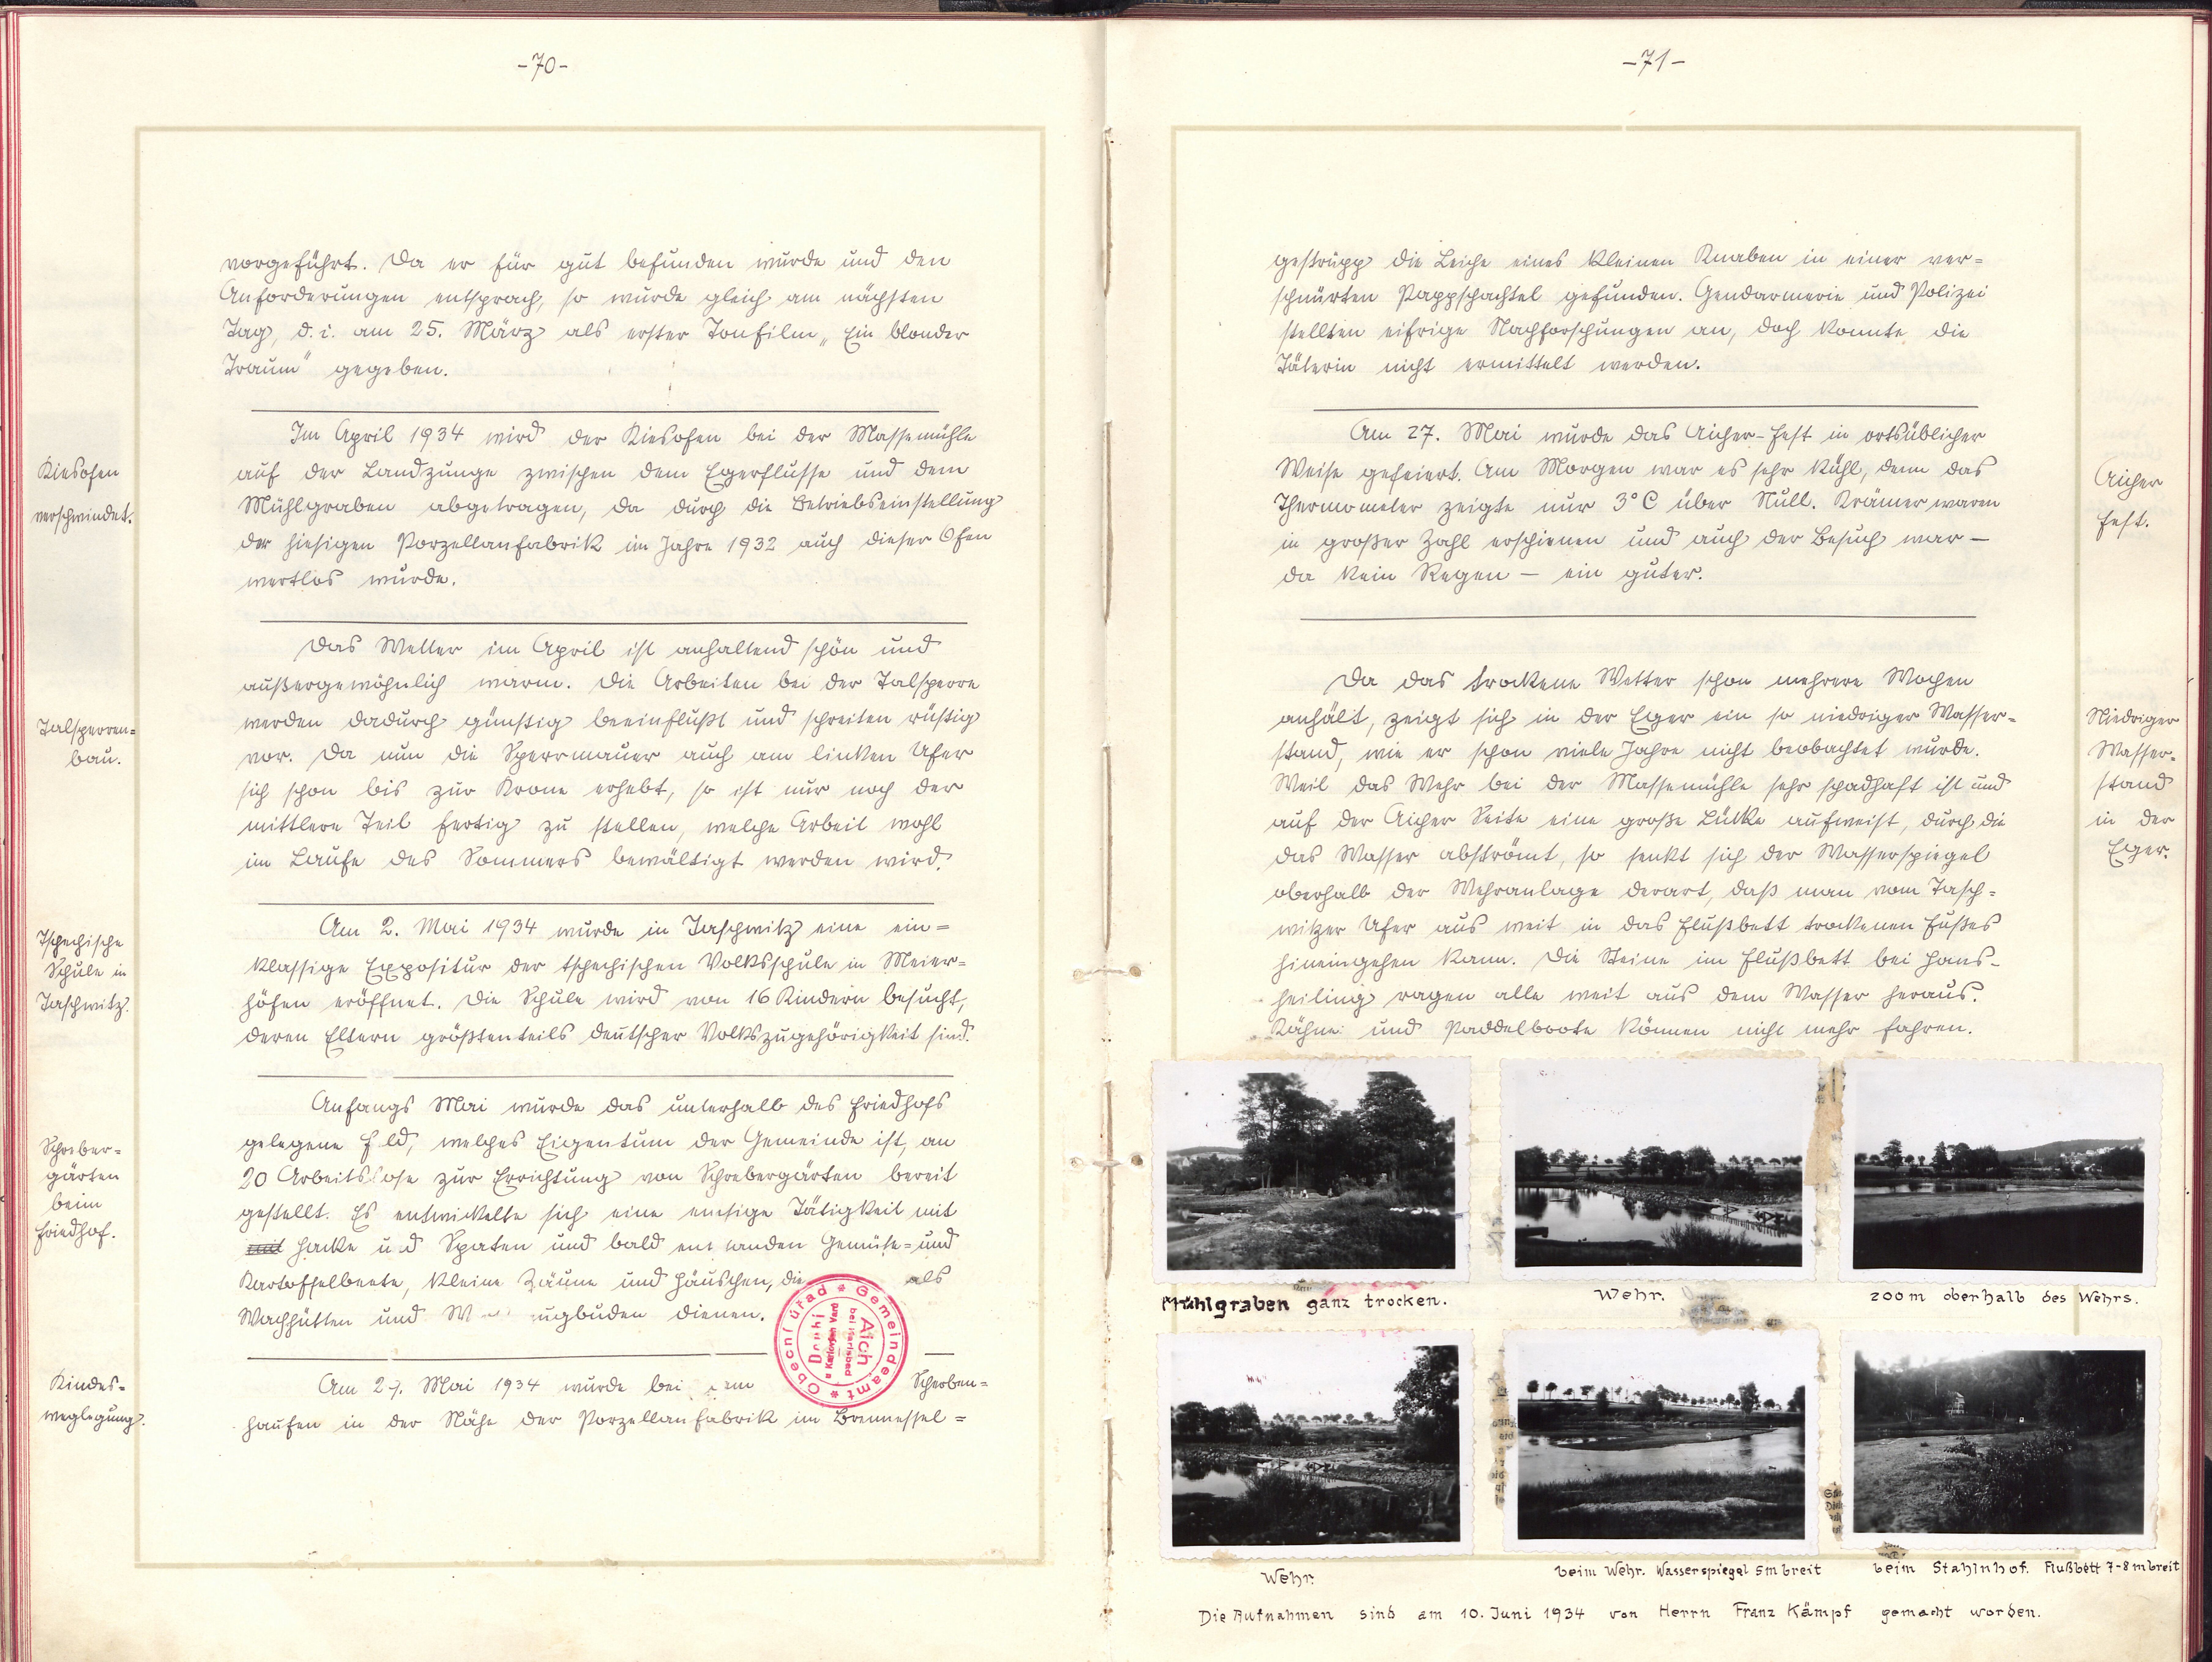 -70-
vorgeführt. Da er für gut befunden wurde und den
Anforderungen entsprach, so wurde gleich am nächsten
Tag, d. i. am 25. März als erster Tonfilm „Ein blonder
Traum" gegeben.
Kiesofen
verschwindet.
Im April 1934 wird der Kiesofen bei der Massemühle
auf der Landzunge zwischen dem Egerflusse und dem
Mühlgraben abgetragen, da durch die Betriebseinstellung
der hiesigen Porzellanfabrik im Jahre 1932 auch dieser Ofen
wertlos wurde.
Das Wetter im April ist anhaltend schön und
außergewöhnlich warm. Die Arbeiten bei der Talsperre
werden dadurch günstig beeinflußt und schreiten rüstig
vor. Da nun die Sperrmauer auch am linken Ufer
sich schon bis zur Krone erhebt, so ist nur noch der
mittlere Teil fertig zu stellen, welche Arbeit wohl
im Laufe des Sommers bewältigt werden wird.
Talsperren=
bau.
Am 2. Mai 1934 wurde in Taschwitz eine ein=
klassige Expositur der tschechischen Volksschule in Meier=
höfen eröffnet. Die Schule wird von 16 Kindern besucht,
deren Eltern größtenteils deutscher Volkszugehörigkeit sind.
Tschechische
Schule in
Taschwitz.
Anfangs Mai wurde das unterhalb des Friedhofs
gelegene F ld, welches Eigentum der Gemeinde ist, an
20 Arbeitslose zur Errichtung von Schrebergärten bereit
gestellt. Es entwickelte sich eine emsige Tätigkeit mit
mit Hacke u d Spaten und bald ent anden Gemüse= und
Kartoffelbeete, kleine Zäune und Häuschen, die als
Wachhütten und W ugbuden dienen.
Schreber=
gärten
beim
Friedhof.
Obecní úřad * Gemeindeamt *
Aich
bei Karlsbad
Kindes=
weglegung.
Am 27. Mai 1934 wurde bei em Scherben=
haufen in der Nähe der Porzellanfabrik im Brennessel=
-71-
gestrüpp die Leiche eines kleinen Knaben in einer ver=
schnürten Pappschachtel gefunden. Gendarmerie und Polizei
stellten eifrige Nachforschungen an, doch konnte die
Täterin nicht ermittelt werden.
Am 27. Mai wurde das Aicher-Fest in ortsüblicher
Weise gefeiert. Am Morgen war es sehr kühl, denn das
Thermometer zeigte nur 3° C über Null. Krämer waren
in großer Zahl erschienen und auch der Besuch war –
da kein Regen – ein guter.
Aicher
Fest.
Da das trockene Wetter schon mehrere Wochen
anhält, zeigt sich in der Eger ein so niedriger Wasser=
stand, wie er schon viele Jahre nicht beobachtet wurde.
Weil das Wehr bei der Massemühle sehr schadhaft ist und
auf der Aicher Seite eine große Lücke aufweist, durch die
das Wasser abströmt, so senkt sich der Wasserspiegel
oberhalb der Wehranlage derart, daß man vom Tasch=
witzer Ufer aus weit in das Flußbett trockenen Fußes
hineingehen kann. Die Steine im Flußbett bei Hans-
heiling ragen alle weit aus dem Wasser heraus.
Kähne und Paddelboote können nicht mehr fahren.
Niedriger
Wasser-
stand
in der
Eger.
Mühlgraben ganz trocken.
Wehr.
200 m oberhalb des Wehrs.
Wehr.
beim Wehr. Wasserspiegel 5m breit
beim Stahlnhof. Flußbett 7-8 m breit
Die Aufnahmen sind am 10. Juni 1934 von Herrn Franz Kämpf gemacht worden.